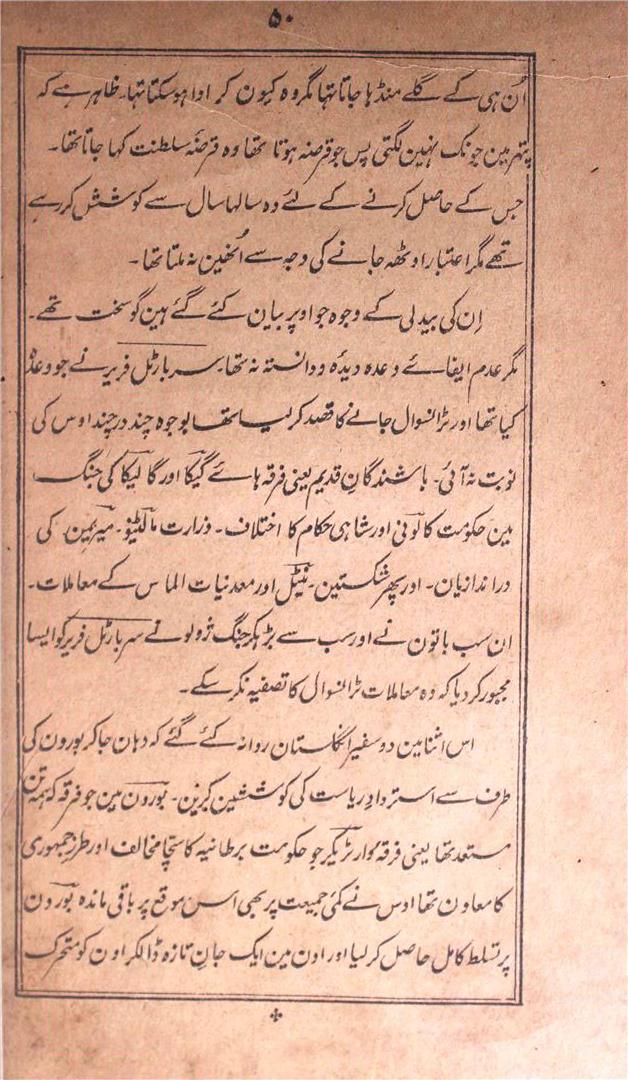 ۵۰
اُن ہی کے گلے منڈہا جاتا تہا مگر وہ کیون کر ادا ہو سکتا تہا۔ ظاہر ہے کہ
پتھر مین جونک نہین لگتی پس جو قرضہ ہوتا تھا وہ قرضۂ سلطنت کہا جاتا تھا۔
جس کے حاصل کرنے کے لئے وہ سالہا سال سے کوشش کر رہے
تھے مگر اعتبار اوٹھہ جانے کی وجہ سے اُنھین نہ ملتا تھا۔
اِن کی بیدلی کے وجوہ جو اوپر بیان کئے گئے ہین گو سخت تھے۔
مگر عدم ایفائے وعدہ دیدہ و دانستہ نہ تھا۔ سر بارٹل فریر نے جو وعدہ
کیا تھا اور ٹرانسوال جانے کا قصد کر لیا تھا بوجوہ چند در چند اوس کی
نوبت نہ آئی۔ باشندگانِ قدیم یعنی فرقہ ہائے گیکا اور گالیکا کی جنگ
مین حکومت کالونی اور شاہی حکام کا اختلاف۔ وزارت مالٹینو۔ میریمین کی
در اندازیان۔ اور پھر شکستین۔ نیٹل اور معدنیات الماس کے معاملات۔
ان سب باتون نے اور سب سے بڑہکر جنگ ژولو نے سر بارٹل فریر کو ایسا
مجبور کر دیا کہ وہ معاملات ٹرانسوال کا تصفیہ نکر سکے۔
اس اثنا مین دو سفیر انگلستان روانہ کئے گئے کہ وہان جا کر بورون کی
طرف سے استردادِ ریاست کی کوششین کرین۔ بورون مین جو فرقہ کہ ہمہ تن
مستعد تھا یعنی فرقہ ٹوار ٹریکر جو حکومت برطانیہ کا سچا مخالف اور طرز جمہوری
کا معاون تھا اوس نے کمئی جمیعت پر بھی اس موقع پر باقی ماندہ بورون
پر تسلط کامل حاصل کر لیا اور اون مین ایک جانِ تازہ ڈالکر اون کو متحرک